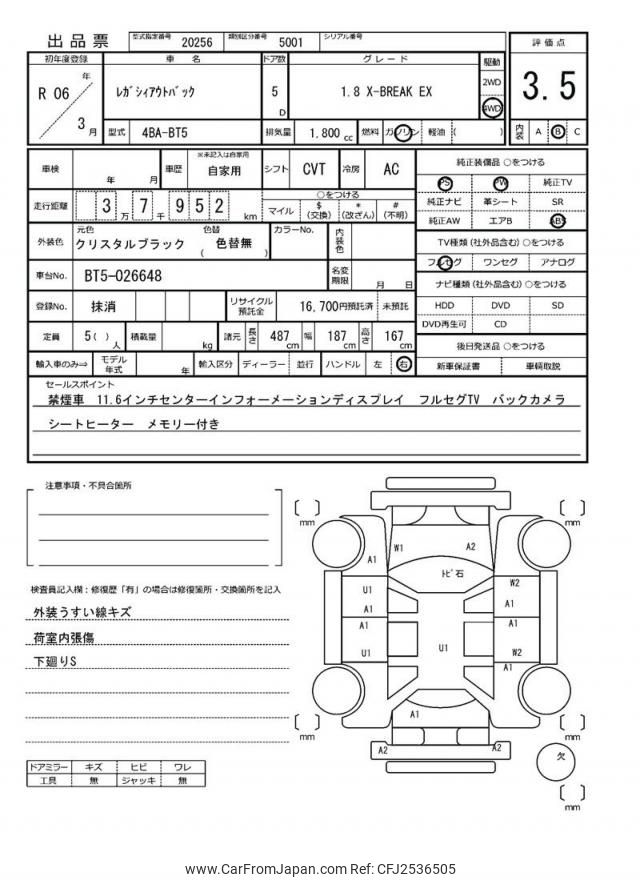 出品票
型式指定番号 20256 類別区分番号 5001 シリアル番号
評価点
3.5
初年度登録 車名 ドア数 グレード 駆動
R 06 年 3 月
ﾚｶﾞｼｨｱｳﾄﾊﾞｯｸ
5 D
1.8 X-BREAK EX
2WD
4WD
型式 4BA-BT5 排気量 1.800 cc 燃料 ガソリン 軽油 ( )
内装 A B C
車検 年 月 車歴 ※未記入は自家用 自家用 シフト CVT 冷房 AC
走行距離 3万 7千 9 5 2 km
○をつける
マイル $(交換) *(改ざん) #(不明)
外装色 元色 クリスタルブラック 色替 ( 色替無 ) カラーNo. 内装色
車台No. BT5-026648 名変期限 月 日
登録No. 抹消 リサイクル預託金 16,700円預託済 未預託
定員 5( ) 人 積載量 kg 諸元 長さ 487 cm 幅 187 cm 高さ 167 cm
輸入車のみ⇒ モデル年式 年 輸入区分 ディーラー 並行 ハンドル 左 右
純正装備品 ○をつける
PS PW 純正TV
純正ナビ 革シート SR
純正AW エアB ABS
TV種類(社外品含む)○をつける
フルセグ ワンセグ アナログ
ナビ種類(社外品含む)○をつける
HDD DVD SD
DVD再生可 CD
後日発送品 ○をつける
新車保証書 車輌取説
セールスポイント
禁煙車 11.6インチセンターインフォーメーションディスプレイ フルセグTV バックカメラ
シートヒーター メモリー付き
注意事項・不具合箇所
検査員記入欄：修復歴「有」の場合は修復箇所・交換箇所を記入
外装うすい線キズ
荷室内張傷
下廻りS
ドアミラー キズ ヒビ ワレ
工具 無 ジャッキ 無
〔 〕mm
〔 〕mm
A1 W1 A2
ﾄﾋﾞ石
U1 W2
A1 A1
A1 A1
U1 U1 W2
A1
A1
〔 〕mm
〔 〕mm
A2 A2
欠
〔 〕mm
www.CarFromJapan.com Ref: CFJ2536505